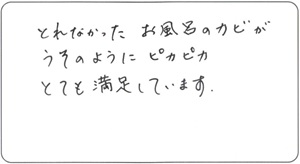 とれなかった お風呂のカビが
うそのように ピカピカ
とても満足しています.